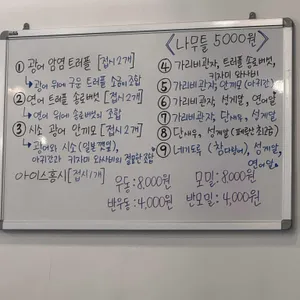 ① 광어 암염 트러플 [접시2개]
↳ 광어 위에 구운 트러플 소금의 조합
② 연어 트러플 솔로버섯 [접시2개]
↳ 연어 위에 솔로버섯의 조합
③ 시소 광어 안끼모 [접시2개]
↳ 광어와 시소(일본깻잎),
아귀간과 키자미 와사비의 조합
아이스홍시 [접시1개]
우동 : 8,000원
반우동 : 4,000원
<나무틀 5000원>
④ 가리비관자, 트러플 솔로버섯,
키자미 와사비
⑤ 가리비관자, 안끼모 (아귀간)
⑥ 가리비관자, 성게알, 연어알
⑦ 가리비관자, 단새우, 성게알
⑧ 단새우, 성게알
⑨ 네기도로 (참다랑어), 성게알,
연어알
모밀 : 8000원
반모밀 : 4,000원